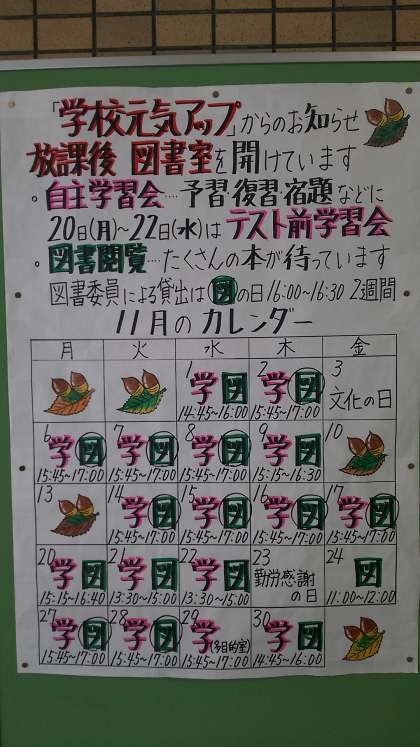 「学校元気アップ」からのお知らせ
放課後 図書室を開けています
。自主学習会…予習・復習・宿題などに
20日(月)~22日(水)はテスト前学習会
。図書閲覧…たくさんの本が待っています
図書委員による貸出は図の日16:00~16:30 2週間
11月のカレンダー
月 火 水 木 金
1 学図 14:45~16:00
2 学図 15:45~17:00
3 文化の日
6 学図 15:45~17:00
7 学図 15:45~17:00
8 学図 15:45~17:00
9 学図 15:15~16:30
10
13
14 学図 15:45~17:00
15 学図 15:45~17:00
16 学図 15:45~17:00
17 学図 15:45~17:00
20 学図 15:15~16:40
21 学図 13:30~15:00
22 学図 13:30~15:00
23 勤労感謝の日
24 図 11:00~12:00
27 学図 15:45~17:00
28 学図 15:45~17:00
29 学(多目的室) 15:45~17:00
30 学図 14:45~16:00